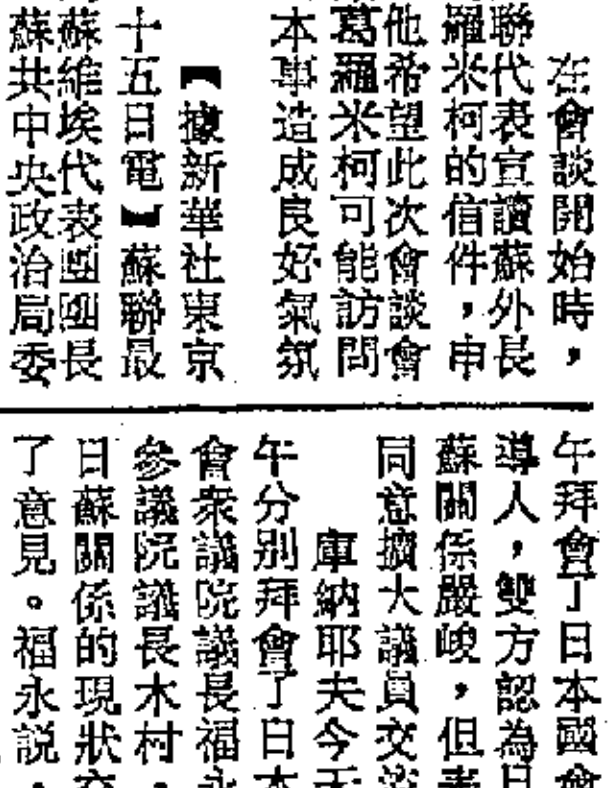 在會談開始時，
聯代表宣讀蘇外長
羅米柯的信件，申
他希望此次會談會
葛羅米柯可能訪問
本事造成良好氣氛
【據新華社東京
十五日電】蘇聯最
蘇維埃代表團團長
蘇共中央政治局委
午拜會了日本國會
導人，雙方認為日
蘇關係嚴峻，但表
同意擴大議員交流
庫納耶夫今天
午分別拜會了日本
會衆議院議長福永
參議院議長木村，
日蘇關係的現狀交
了意見。福永説，